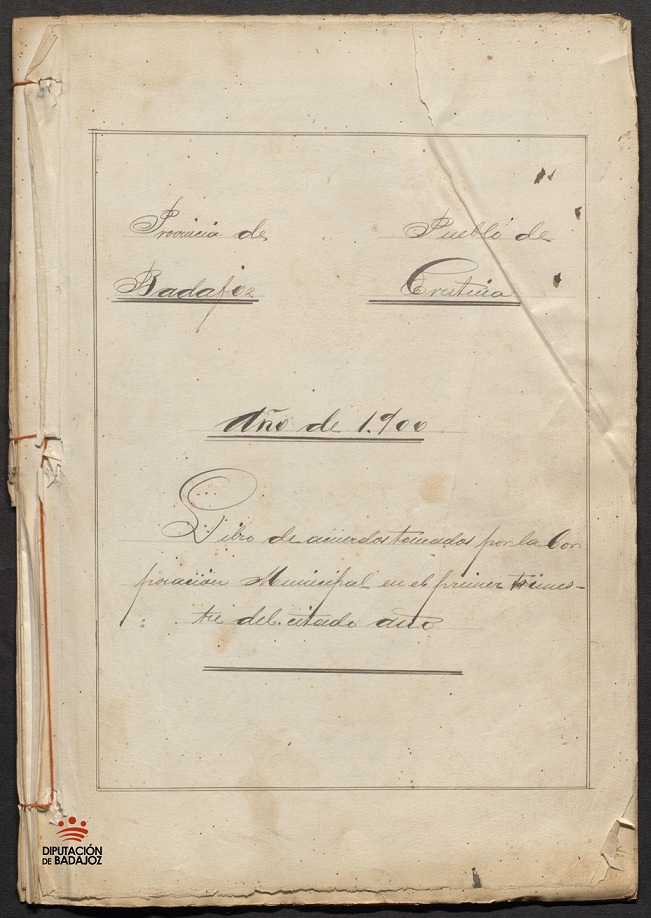 Provincia de
Badajoz
Pueblo de
Cristina
Año de 1.900
Libro de acuerdos tomados por la Cor
poración Municipal en el primer trimes-
tre del citado año
DIPUTACIÓN
DE BADAJOZ